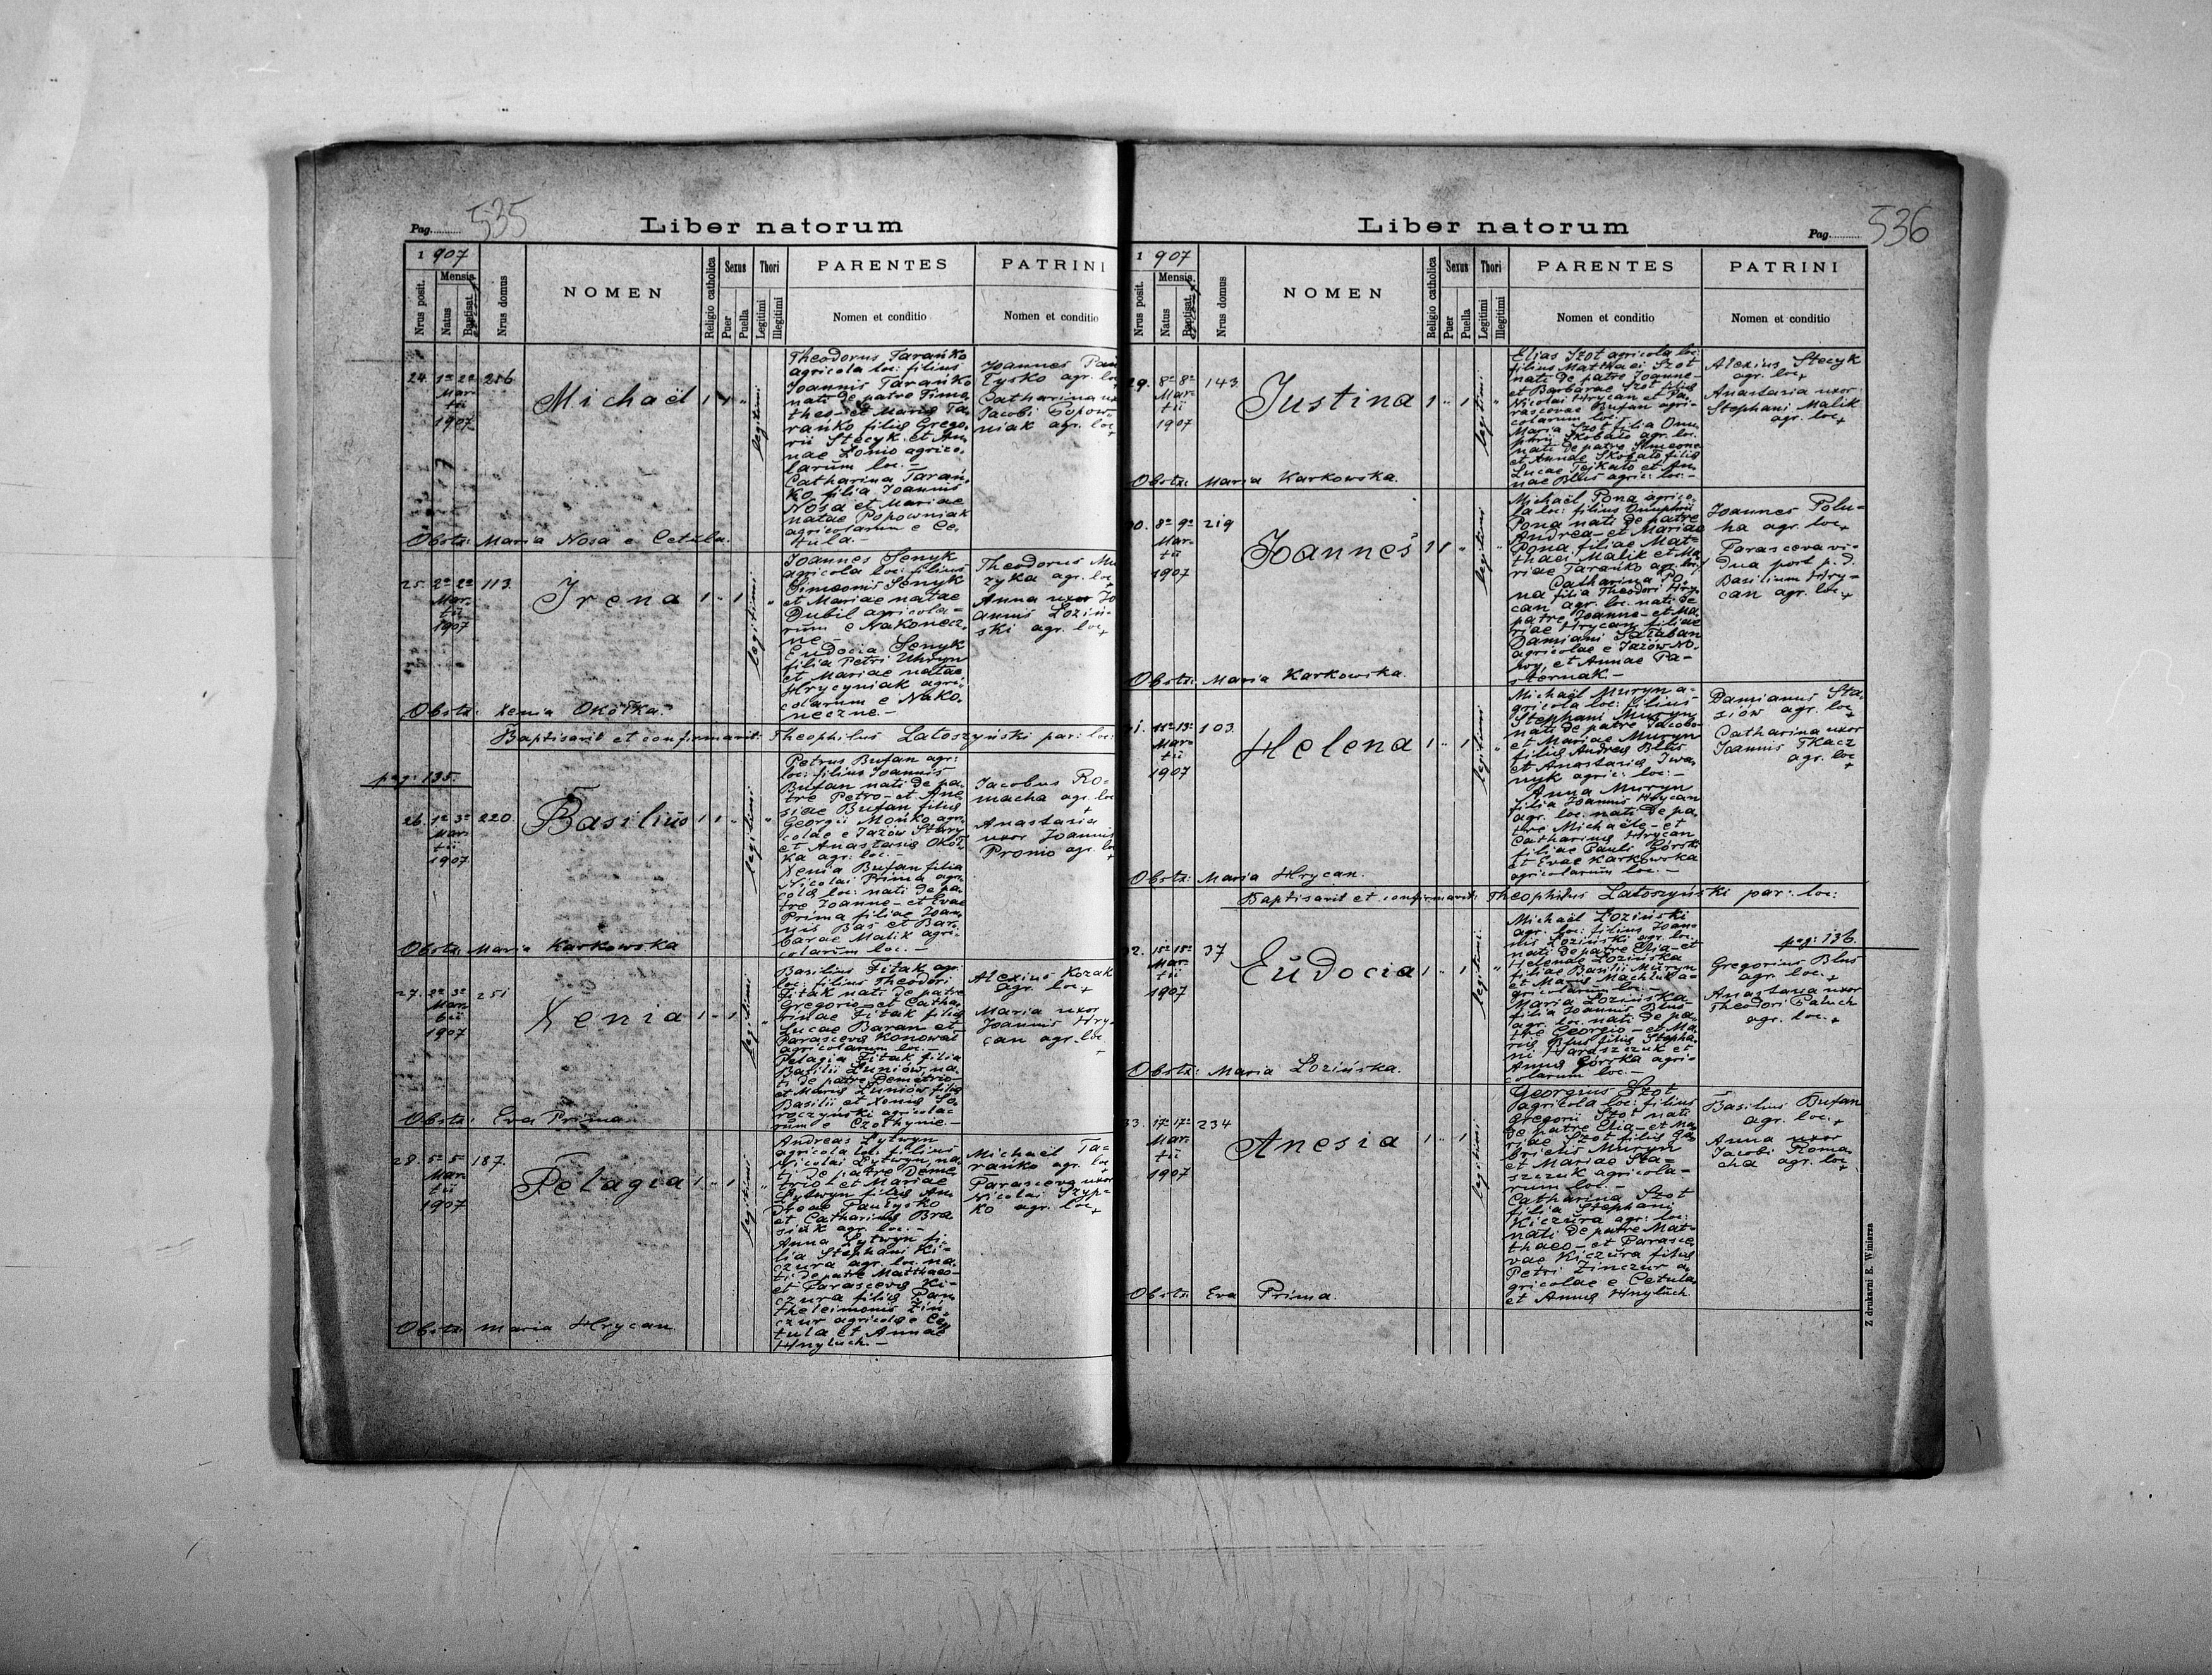 Pag. 535
Liber natorum
1907
Nrus posit.
Mensis
Natus
Baptisat.
Nrus domus
NOMEN
Religio catholica
Sexus
Puer
Puella
Thori
Legitimi
Illegitimi
PARENTES
Nomen et conditio
PATRINI
Nomen et conditio
24. 1a 2a 256
Martii
1907
Michaël
legitimi
Theodorus Tarańko
agricola loc: filius
Joannis Tarańko
nati de patre Timo-
theo- et Mariae Ta-
rańko filiae Grego-
rii Stecyk et An-
nae Łonio agrico-
larum loc.-
Catharina Tarań-
ko filia Joannis
Nosa et Mariae
natae Popowniak
agricolarum e Ce-
tula.-
Joannes
Tysko agr. loc
Catharina
Jacobi Popow-
niak agr. loc
Obstx: Maria Nosa e Cetula.
25. 2a 2a 113.
Mar-
tii
1907
Irena
legitimi
Joannes Senyk
agricola loc: filius
Simeonis Senyk
et Mariae natae
Dubil agricola-
rum e Nakonecz-
ne.-
Eudocia Senyk
filia Petri Uhryn
et Mariae natae
Hrycyniak agri-
colarum e Nako-
neczne.-
Theodorus Mu
zyka agr. loc
Anna uxor Jo
annis Łoziń-
ski agr. loc
Obstx: Xenia Okółka.
Baptisavit et confirmavit: Theophilus Latoszyński par: loc:
pag: 135.
26. 1a 3a 220.
Mar-
tii
1907
Basilius
legitimi
Petrus Bufan agr:
loc: filius Joannis
Bufan nati de pa-
tre Petro- et Ane-
siae Bufan filiae
Georgii Mońko agri-
colae e Jazów Stary
et Anastasiae Okół-
ka agr: loc.-
Xenia Bufan filia
Nicolai Prima agri-
colae loc: nati de pa-
tre Joanne- et Evae
Prima filiae Joan-
nis Bas et Bar-
barae Malik agri-
colarum loc.-
Jacobus Ro-
macha agr. loc
Anastasia
uxor Joannis
Pronio agr. loc
Obstx: Maria Karkowska
27. 2a 3a 251
Mar-
tii
1907
Xenia
legitimi
Basilius Fitak agr.
loc: filius Theodori
Fitak nati de patre
Gregorio- et Catha-
rinae Fitak filiae
Lucae Baran et
Parascevae Konowal
agricolarum loc.-
Pelagia Fitak filia
Basilii Łuniów, na-
ti de patre Demetrio-
et Mariae Łuniów filiae
Basilii et Xeniae So-
roczyński agricola-
rum e Czołhynie.-
Alexius Kozak
agr. loc
Maria uxor
Joannis Hry-
can agr. loc
Obstx: Eva Prima.
28. 5a 5a 187.
Mar-
tii
1907
Pelagia
legitimi
Andreas Łytwyn
agricola loc. filius
Nicolai Łytwyn, na-
ti de patre Deme-
trio- et Mariae
Łytwyn filiae An-
dreae Pautysko
et Catharinae Bra
siuk agr. loc.-
Anna Łytwyn fi-
lia Stephani Ki-
czura agr. loc. na-
ti de patre Matthaeo-
et Parascevae Ki-
czura filiae Pan-
theleimonis Zin-
czur agricolae e Ce-
tula et Annae
Hnyluch.-
Michaël Ta-
rańko agr. loc
Parasceva uxor
Nicolai Szyp-
ko agr. loc
Obstx: Maria Hrycan.
Liber natorum
Pag. 536
1907
Nrus posit.
Mensis
Natus
Baptisat.
Nrus domus
NOMEN
Religio catholica
Sexus
Puer
Puella
Thori
Legitimi
Illegitimi
PARENTES
Nomen et conditio
PATRINI
Nomen et conditio
29. 8a 8a 143.
Mar-
tii
1907
Justina
legitimi
Elias Szot agricola loc:
filius Matthaei Szot
nati de patre Joanne-
et Barbarae Szot filiae
Nicolai Hrycan et Pa-
rascevae Bufan agri-
colarum loc.-
Maria Szot filia Onu-
phrii Skobało agr. loc.
nati de patre Simeone-
et Annae Skobało filiae
Lucae Tejkało et An-
nae Blus agric: loc.-
Alexius Stecyk
agr. loc
Anastasia uxor
Stephani Malik
agr. loc
Obstx: Maria Karkowska.
30. 8a 9a 219
Mar-
tii
1907
Joannes
legitimi
Michaël Pona agrico-
la loc: filius Onuphrii
Pona nati de patre
Andrea- et Mariae
Pona filiae Mat-
thaei Malik et Ma-
riae Tarańko agr. loc.
Catharina Po-
na filia Theodori Hry-
can agr. loc. nati de
patre Joanne- et Ma-
riae Hrycan filiae
Damiani Sałaban
agricolae e Jazów No-
wy, et Annae Pa-
sternak.-
Joannes Polu-
ha agr. loc
Parasceva vi-
dua post p.d.
Basilium Hry-
can agr. loc
Obstx: Maria Karkowska.
31. 11a 13a 103.
Mar-
tii
1907
Helena
legitimi
Michaël Muryn a-
gricola loc: filius
Stephani Muryn
nati de patre Jacobo-
et Mariae Muryn
filiae Andreae Blus
et Anastasiae Iwa-
nyk agric: loc:-
Anna Muryn
filia Joannis Hrycan
agr. loc. nati de pa-
tre Michaële- et
Catharinae Hrycan
filiae Pauli Górski
et Evae Karkowska
agricolarum loc.-
Damianus Sta-
siów agr. loc
Catharina uxor
Joannis Tkacz
agr. loc
Obstx: Maria Hrycan.
Baptisavit et confirmavit: Theophilus Latoszyński par: loc:
pag: 136.
32. 15a 18a 37
Mar-
tii
1907
Eudocia
legitimi
Michaël Łoziński
agr. loc. filius Joan-
nis Łoziński agr. loc.
nati de patre Elia- et
Helenae Łozińska
filiae Basilii Muryn
et Mariae Machluk a-
gricolarum loc.-
Maria Łozińska
filia Joannis Blus
agr. loc. nati de pa-
tre Georgio- et Ma-
riae Blus filiae Stepha-
ni Haraszczuk et
Annae Górska agri-
colarum loc.-
Gregorius Blus
agr. loc.
Anastasia uxor
Theodori Paluch
agr. loc.
Obstx: Maria Łozińska.
33. 17a 17a 234
Mar-
tii
1907
Anesia
legitimi
Georgius Szot
agricola loc: filius
Gregorii Szot nati
de patre Elia- et Ma-
riae Szot filiae Ga-
brielis Muryn
et Mariae Sta-
szczuk agricola-
rum loc.-
Catharina Szot
filia Stephani
Kiczura agr: loc:
nati de patre Mat-
thaeo- et Parasce-
vae Kiczura filiae
Petri Zinczur a-
gricolae e Cetula
et Annae Hnyluch.
Basilius Bufan
agr. loc.
Anna uxor
Jacobi Roma-
cha agr. loc
Obstx: Eva Prima.
Z drukarni E. Winiarza